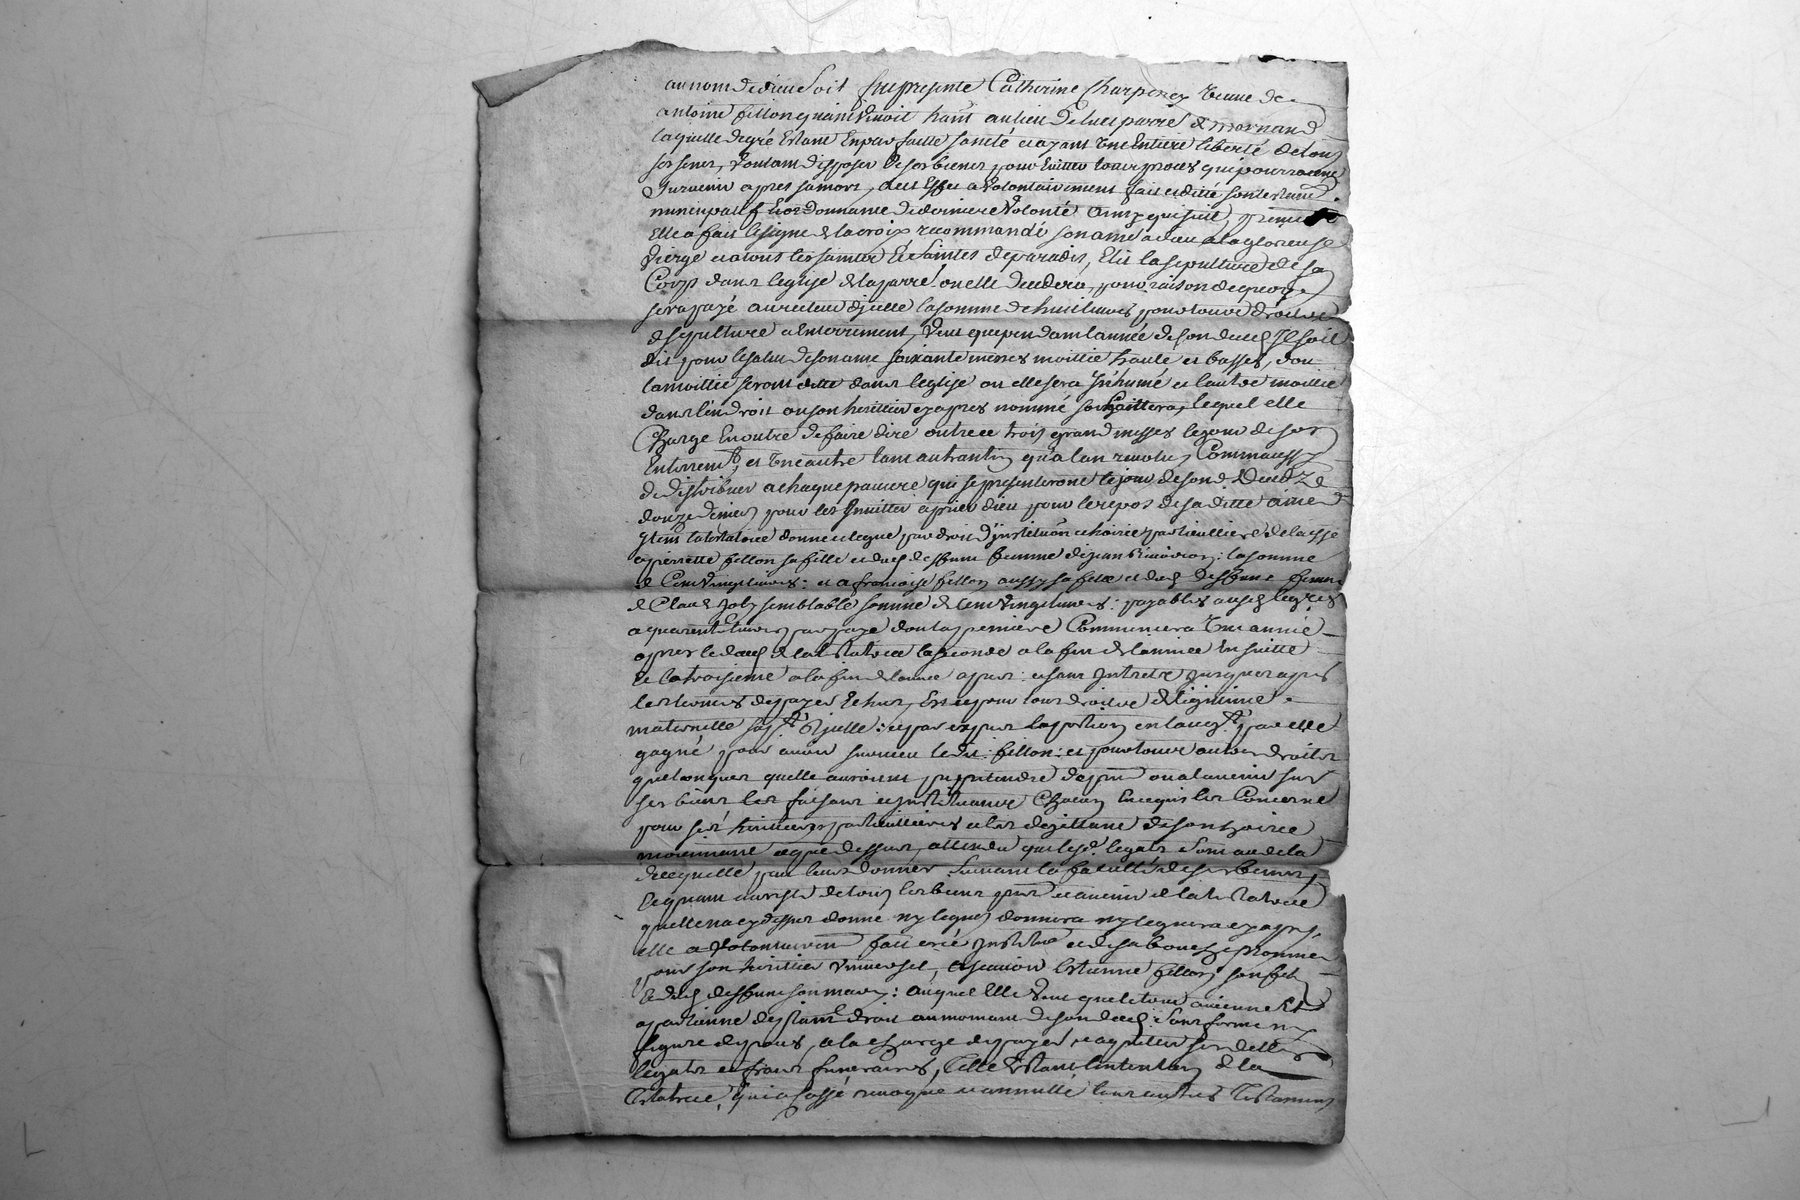 au nom de dieu soit fut presente Catherine Charpenay veuve de
antoine fillon quand vivoit hant au lieu de
laquelle de gré Estant En parfaitte santé et ayant Une Entiere liberté de tous
ses sens, voulant disposer de ses biens, pour Eviter tous proces qui pourroient
survenir apres sa mort, de cet Effet a volontairement fait et ditté son testament
nuncupatif Et ordonnance de derniere volonté Comme qui suit, premierement
Elle a fait le signe de la croix recommandé son ame a dieu a la glorieuse
vierge et a tous les saints Et Saintes de paradis, Elit la sepulture de son
Corps dans l'eglise de la parr. ou elle decedera, pour raison de quoy
sera payé au recteur d'jcelle la somme de huit livres pour tous droits
de sepulture et Enterrement, veut que pendant l'année de son deces Jl soit
dit pour le salut de son ame soixante messes moittié haute et basses, dont
la moittié seront ditte dans l'eglise ou elle sera Jnhumé et l'autre moittié
dans l'endroit ou son heritier cy apres nommé souhaittera, lequel elle
Charge En outre de faire dire outre ce trois grand messes le jour de son
Enterremt. et Une autre l'an revolu, Comme aussy
de distribuer a chaque pauvre qui se presenteront le jour de son d. Deced
douze deniers pour les Jnvitter a prier dieu pour le repos de sa ditte ame
Jtem la testatrice donne et legue par droit d'jnstitution et hoirie particulliere delaisse
a pierrette fillon sa fille et dud. deffunt femme de jean la somme
de Cent vingt livres: et a francoise fillon aussy sa fille et dud. deffunt femme
de Claude Joly semblable somme de Cent vingt livres: payables
a quarente livres par paye dont la premiere Commencera Une année
apres le deces de la testatrice la seconde a la fin de l'année En suitte
Et la troisieme a la fin de l'année apres: et sans Jnterets jusques apres
les termes de payes Echus, Et ce pour tous droits de legitime
maternelle d'jcelle: et par expres la portion en l'augt. par elle
gagné pour avoir survecu le dit fillon: et pour tous autres droits
quelconques quelle auroient pu pretendre de put ou a l'avenir sur
ses biens les faisant et jnstituant Chacun En ce qui les Concerne
pour ses heritieres particullieres et les dejettant de son hoirie
moiennant ce que dessus, attendu que lesd. legats sont au dela
de ce quelle peu leurs donner suivant la faculté de ses biens,
Et quant au reste de tous les biens pnt et avenir de la testatrice
quelle na cy dessus donné ny legué donnera ny leguera cy apres,
elle a volontairemt fait créé Jnstitué et de sa bouche nommé
pour son heritier universel, estienne fillon son fils
Et dud. deffunt son mary: auquel Elle veut que le tout avienne et
appartienne de plaint droit au moment de son deces Sans forme ny
figure de proces, a la charge de payer et aquitter ses dettes
legats et frais funeraires, Telle Estant l'intention de la
testatrice, qui a cassé revoqué et annullé tous autres Testaments